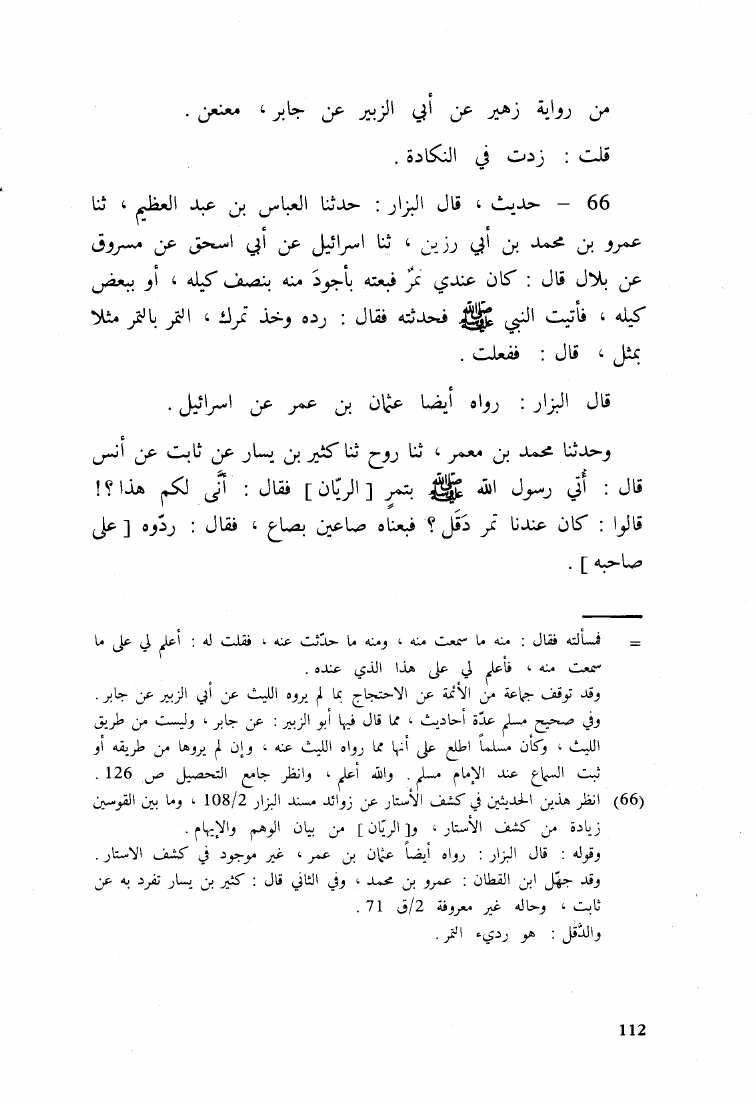 من رواية زهير عن أبي الزبير عن جابر ، معنعن .
قلت : زدت في النكادة .
66 – حديث ، قال البزار : حدثنا العباس بن عبد العظيم ، ثنا
عمرو بن محمد بن أبي رزين ، ثنا اسرائيل عن أبي اسحق عن مسروق
عن بلال قال : كان عندي تمرٌ فبعته بأجودَ منه بنصف كيله ، أو ببعض
كيله ، فأتيت النبي ﷺ فحدثته فقال : رده وخذ تمرك ، التمر بالتمر مثلا
بمثل ، قال : ففعلت .
قال البزار : رواه أيضا عثمان بن عمر عن اسرائيل .
وحدثنا محمد بن معمر ، ثنا روح ثنا كثير بن يسار عن ثابت عن أنس
قال : أُتي رسول الله ﷺ بتمرٍ [ الريّان ] فقال : أنَّى لكم هذا ؟!
قالوا : كان عندنا تمر دَقَل ؟ فبعناه صاعين بصاع ، فقال : ردّوه [ على
صاحبه ] .
= فسألته فقال : منه ما سمعت منه ، ومنه ما حدّثت عنه ، فقلت له : أعلم لي على ما
سمعت منه ، فأعلم لي على هذا الذي عنده .
وقد توقف جماعة من الأئمة عن الاحتجاج بما لم يروه الليث عن أبي الزبير عن جابر .
وفي صحيح مسلم عدّة أحاديث ، مما قال فيها أبو الزبير : عن جابر ، وليست من طريق
الليث ، وكأن مسلماً اطلع على أنها مما رواه الليث عنه ، وإن لم يروها من طريقه أو
ثبت السماع عند الإمام مسلم . والله أعلم ، وانظر جامع التحصيل ص 126 .
(66) انظر هذين الحديثين في كشف الأستار عن زوائد مسند البزار 108/2 ، وما بين القوسين
زيادة من كشف الأستار ، و[ الريّان ] من بيان الوهم والإيهام .
وقوله : قال البزار : رواه أيضاً عثمان بن عمر ، غير موجود في كشف الاستار .
وقد جهّل ابن القطان : عمرو بن محمد ، وفي الثاني قال : كثير بن يسار تفرد به عن
ثابت ، وحاله غير معروفة 2/ق 71 .
والدَّقَل : هو رديء التمر .
112